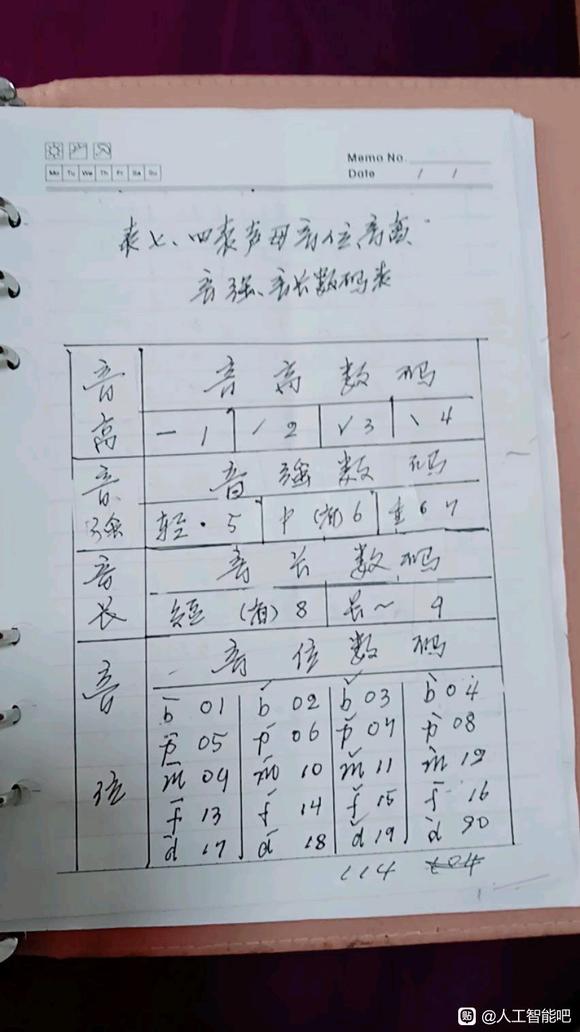 Memo No.
Mo Tu We Th Fr Sa Su
Date / /
表七、四表声母音位、音高、
音强、音长数码表
音高 音高数码
— 1 ˊ 2 ˇ 3 ˋ 4
音强 音强数码
轻·5 中(省)6 重 6 7
音长 音长数码
短(省)8 长~ 9
音位 音位数码
b̄ 01 b́ 02 b̌ 03 b̀ 04
p̄ 05 ṕ 06 p̌ 07 p̀ 08
m̄ 09 ḿ 10 m̌ 11 m̀ 12
f̄ 13 f́ 14 f̌ 15 f̀ 16
d̄ 17 d́ 18 ď 19 d̀ 20
114
@人工智能吧